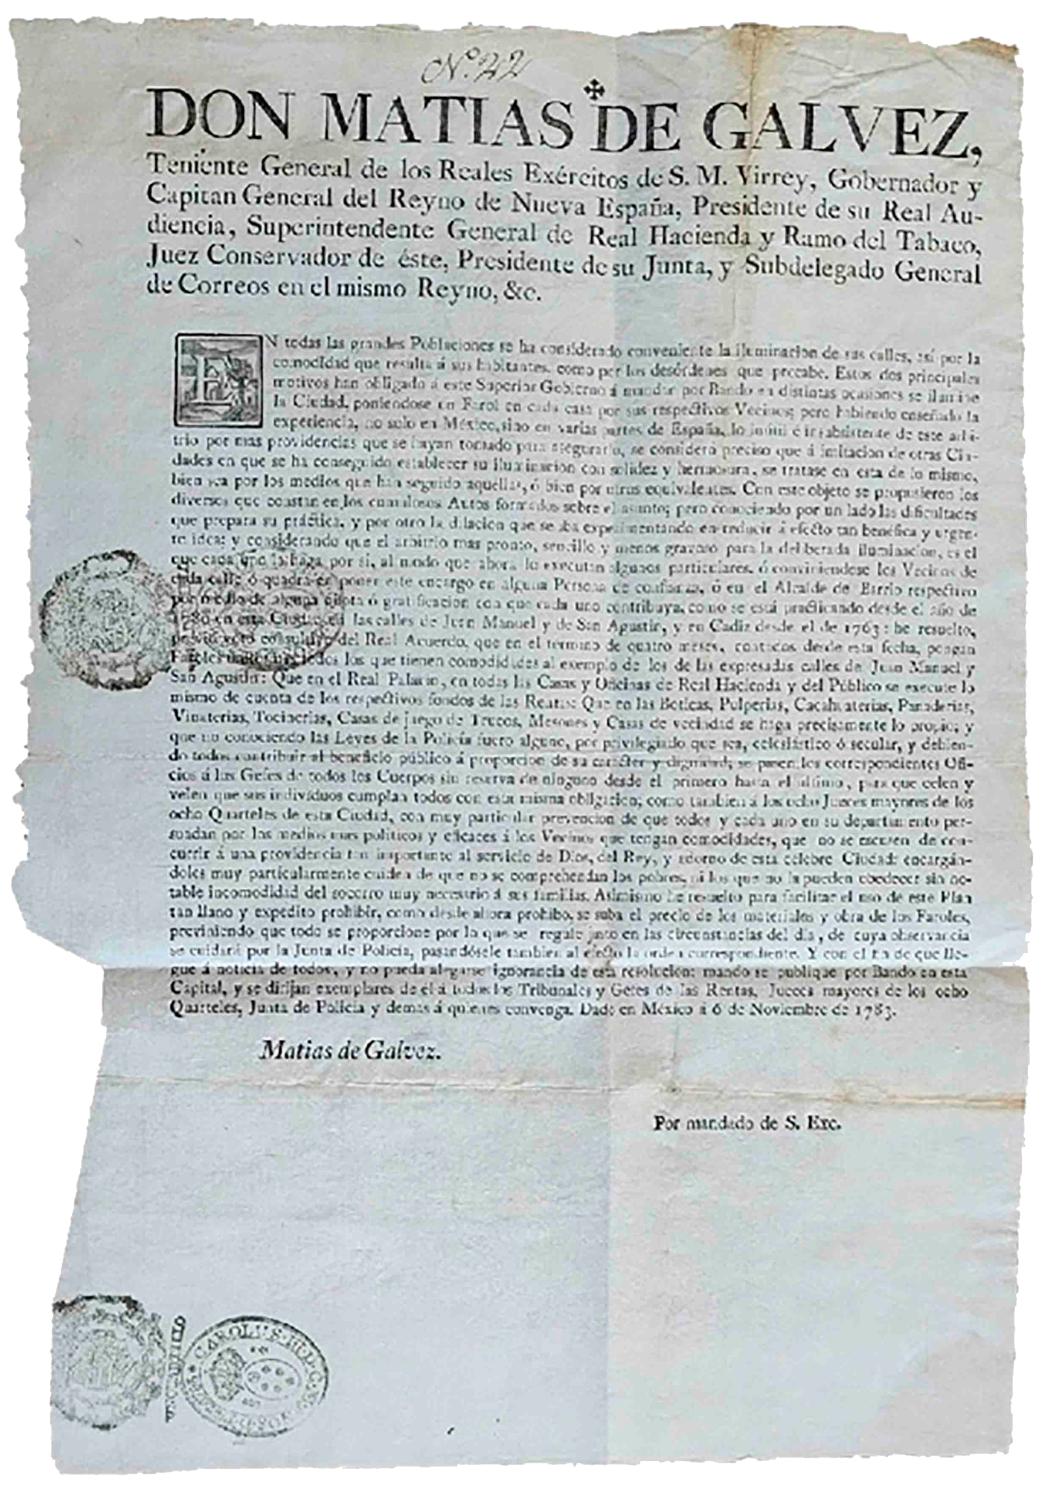 Nº. 22
DON MATIAS DE GALVEZ,
Teniente General de los Reales Exércitos de S. M. Virrey, Gobernador y
Capitan General del Reyno de Nueva España, Presidente de su Real Au-
diencia, Superintendente General de Real Hacienda y Ramo del Tabaco,
Juez Conservador de éste, Presidente de su Junta, y Subdelegado General
de Correos en el mismo Reyno, &c.
EN todas las grandes Poblaciones se ha considerado conveniente la iluminacion de sus calles, así por la
comodidad que resulta á sus habitantes, como por los desórdenes que precabe. Estos dos principales
motivos han obligado á este Superior Gobierno á mandar por Bando en distintas ocasiones se ilumine
la Ciudad, poniendose un Farol en cada casa por sus respectivos Vecinos; pero habiendo enseñado la
experiencia, no solo en México, sino en varias partes de España, lo inutil é insubsistente de este arbi-
trio por mas providencias que se hayan tomado para asegurarlo, se consideró preciso que á imitacion de otras Ciu-
dades en que se ha conseguido establecer su iluminacion con solidez y hermosura, se tratase en esta de lo mismo,
bien sea por los medios que han seguido aquellas, ó bien por otros equivalentes. Con este objeto se propusieron los
diversos que constan en los cumulosos Autos formados sobre el asunto; pero conociendo por un lado las dificultades
que prepara su práctica, y por otro la dilacion que se iba experimentando en reducir á efecto tan benéfica y urgen-
te idea: y considerando que el arbitrio mas pronto, sencillo y menos gravoso para la deliberada iluminacion, es el
que cada uno la haga por sí, al modo que ahora lo executan algunos particulares, ó conviniendose los Vecinos de
cada calle ó quadra en poner este encargo en alguna Persona de confianza, ó en el Alcalde de Barrio respectivo
por medio de alguna quota ó gratificacion con que cada uno contribuya, como se está practicando desde el año de
1780 en esta Ciudad en las calles de Juan Manuel y de San Agustin, y en Cadiz desde el de 1763: he resuelto,
previo voto consultivo del Real Acuerdo, que en el termino de quatro meses, contados desde esta fecha, pongan
Faroles todos los que tienen comodidades al exemplo de los de las expresadas calles de Juan Manuel y
San Agustin: Que en el Real Palacio, en todas las Casas y Oficinas de Real Hacienda y del Público se execute lo
mismo de cuenta de los respectivos fondos de las Rentas: Que en las Boticas, Pulperias, Cacahuaterias, Panaderias,
Vinaterias, Tocinerías, Casas de juego de Trucos, Mesones y Casas de vecindad se haga precisamente lo propio; y
que no conociendo las Leyes de la Policía fuero alguno, por privilegiado que sea, eclesiástico ó secular, y debien-
do todos contribuir al beneficio público á proporcion de su carácter y dignidad; se pasen los correspondientes Ofi-
cios á los Gefes de todos los Cuerpos sin reserva de ninguno desde el primero hasta el ultimo, para que celen y
velen que sus individuos cumplan todos con esta misma obligacion; como tambien á los ocho Jueces mayores de los
ocho Quarteles de esta Ciudad, con muy particular prevencion de que todos y cada uno en su departamento per-
suadan por los medios mas politicos y eficaces á los Vecinos que tengan comodidades, que no se escusen de con-
currir á una providencia tan importante al servicio de Dios, del Rey, y adorno de esta célebre Ciudad: encargán-
doles muy particularmente cuiden de que no se comprehendan los pobres, ni los que no la pueden obedecer sin no-
table incomodidad del socorro muy necesario á sus familias. Asimismo he resuelto para facilitar el uso de este Plan
tan llano y expedito prohibir, como desde ahora prohibo, se suba el precio de los materiales y obra de los Faroles,
previniendo que todo se proporcione por lo que se regule justo en las circunstancias del dia, de cuya observancia
se cuidará por la Junta de Policía, pasándosele tambien al efecto la orden correspondiente. Y con el fin de que lle-
gue á noticia de todos, y no pueda alegarse ignorancia de esta resolucion: mando se publique por Bando en esta
Capital, y se dirijan exemplares de él á todos los Tribunales y Gefes de las Rentas, Jueces mayores de los ocho
Quarteles, Junta de Policía y demas á quienes convenga. Dado en México á 6 de Noviembre de 1783.
Matias de Galvez.
Por mandado de S. Exc.
CAROLUS III D G